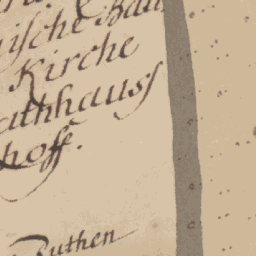 ische Bau
Kirche
athhauss
hoff.
Ruthen